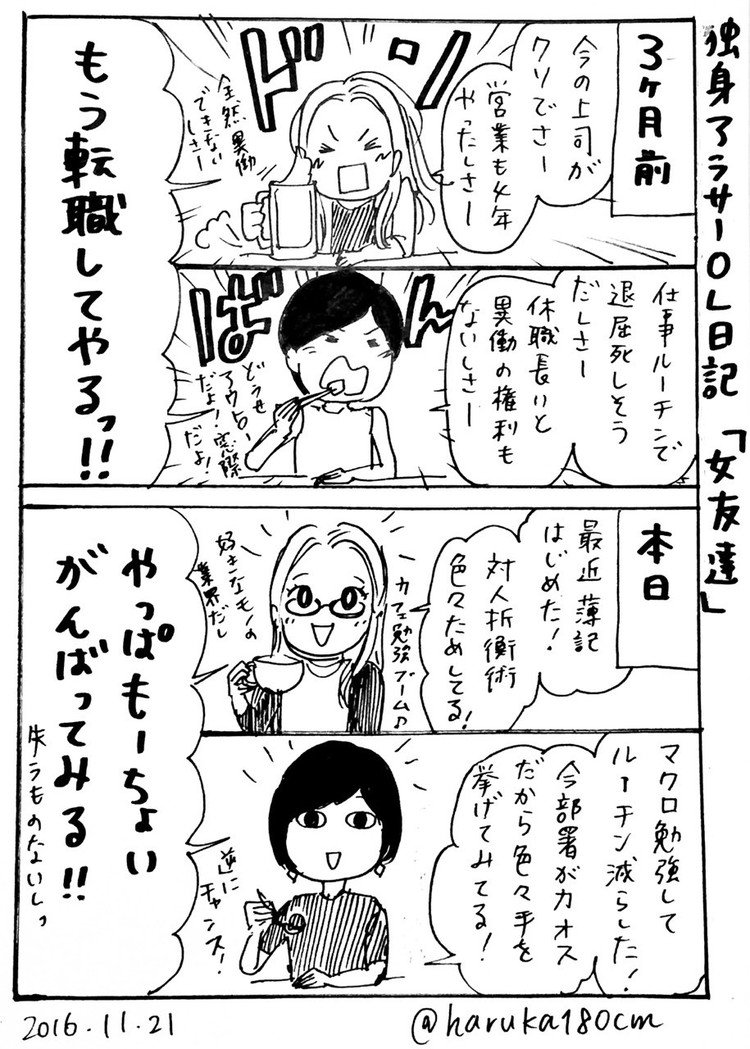 独身アラサーOL日記「女友達」
3ヶ月前
今の上司が
クソでさー
営業も4年
やったしさー
ドンッ
全然異働
できない
しさー
仕事ルーチンで
退屈死しそう
だしさー
休職長いと
異働の権利も
ないしさー
ばーん
どうせ
アウトロー
だよ!窓際
だよ!
もう転職してやるっ!!
本日
最近薄記
はじめた!
対人折衝術
色々ためしてる!
カフェ勉強ブーム♪
好きなモノの
業界だし
マクロ勉強して
ルーチン減らした!
今部署がカオス
だから色々手を
挙げてみてる!
逆に
チャンス!
やっぱもーちょい
がんばってみる!!
失うものないしっ
2016.11.21
@haruka180cm